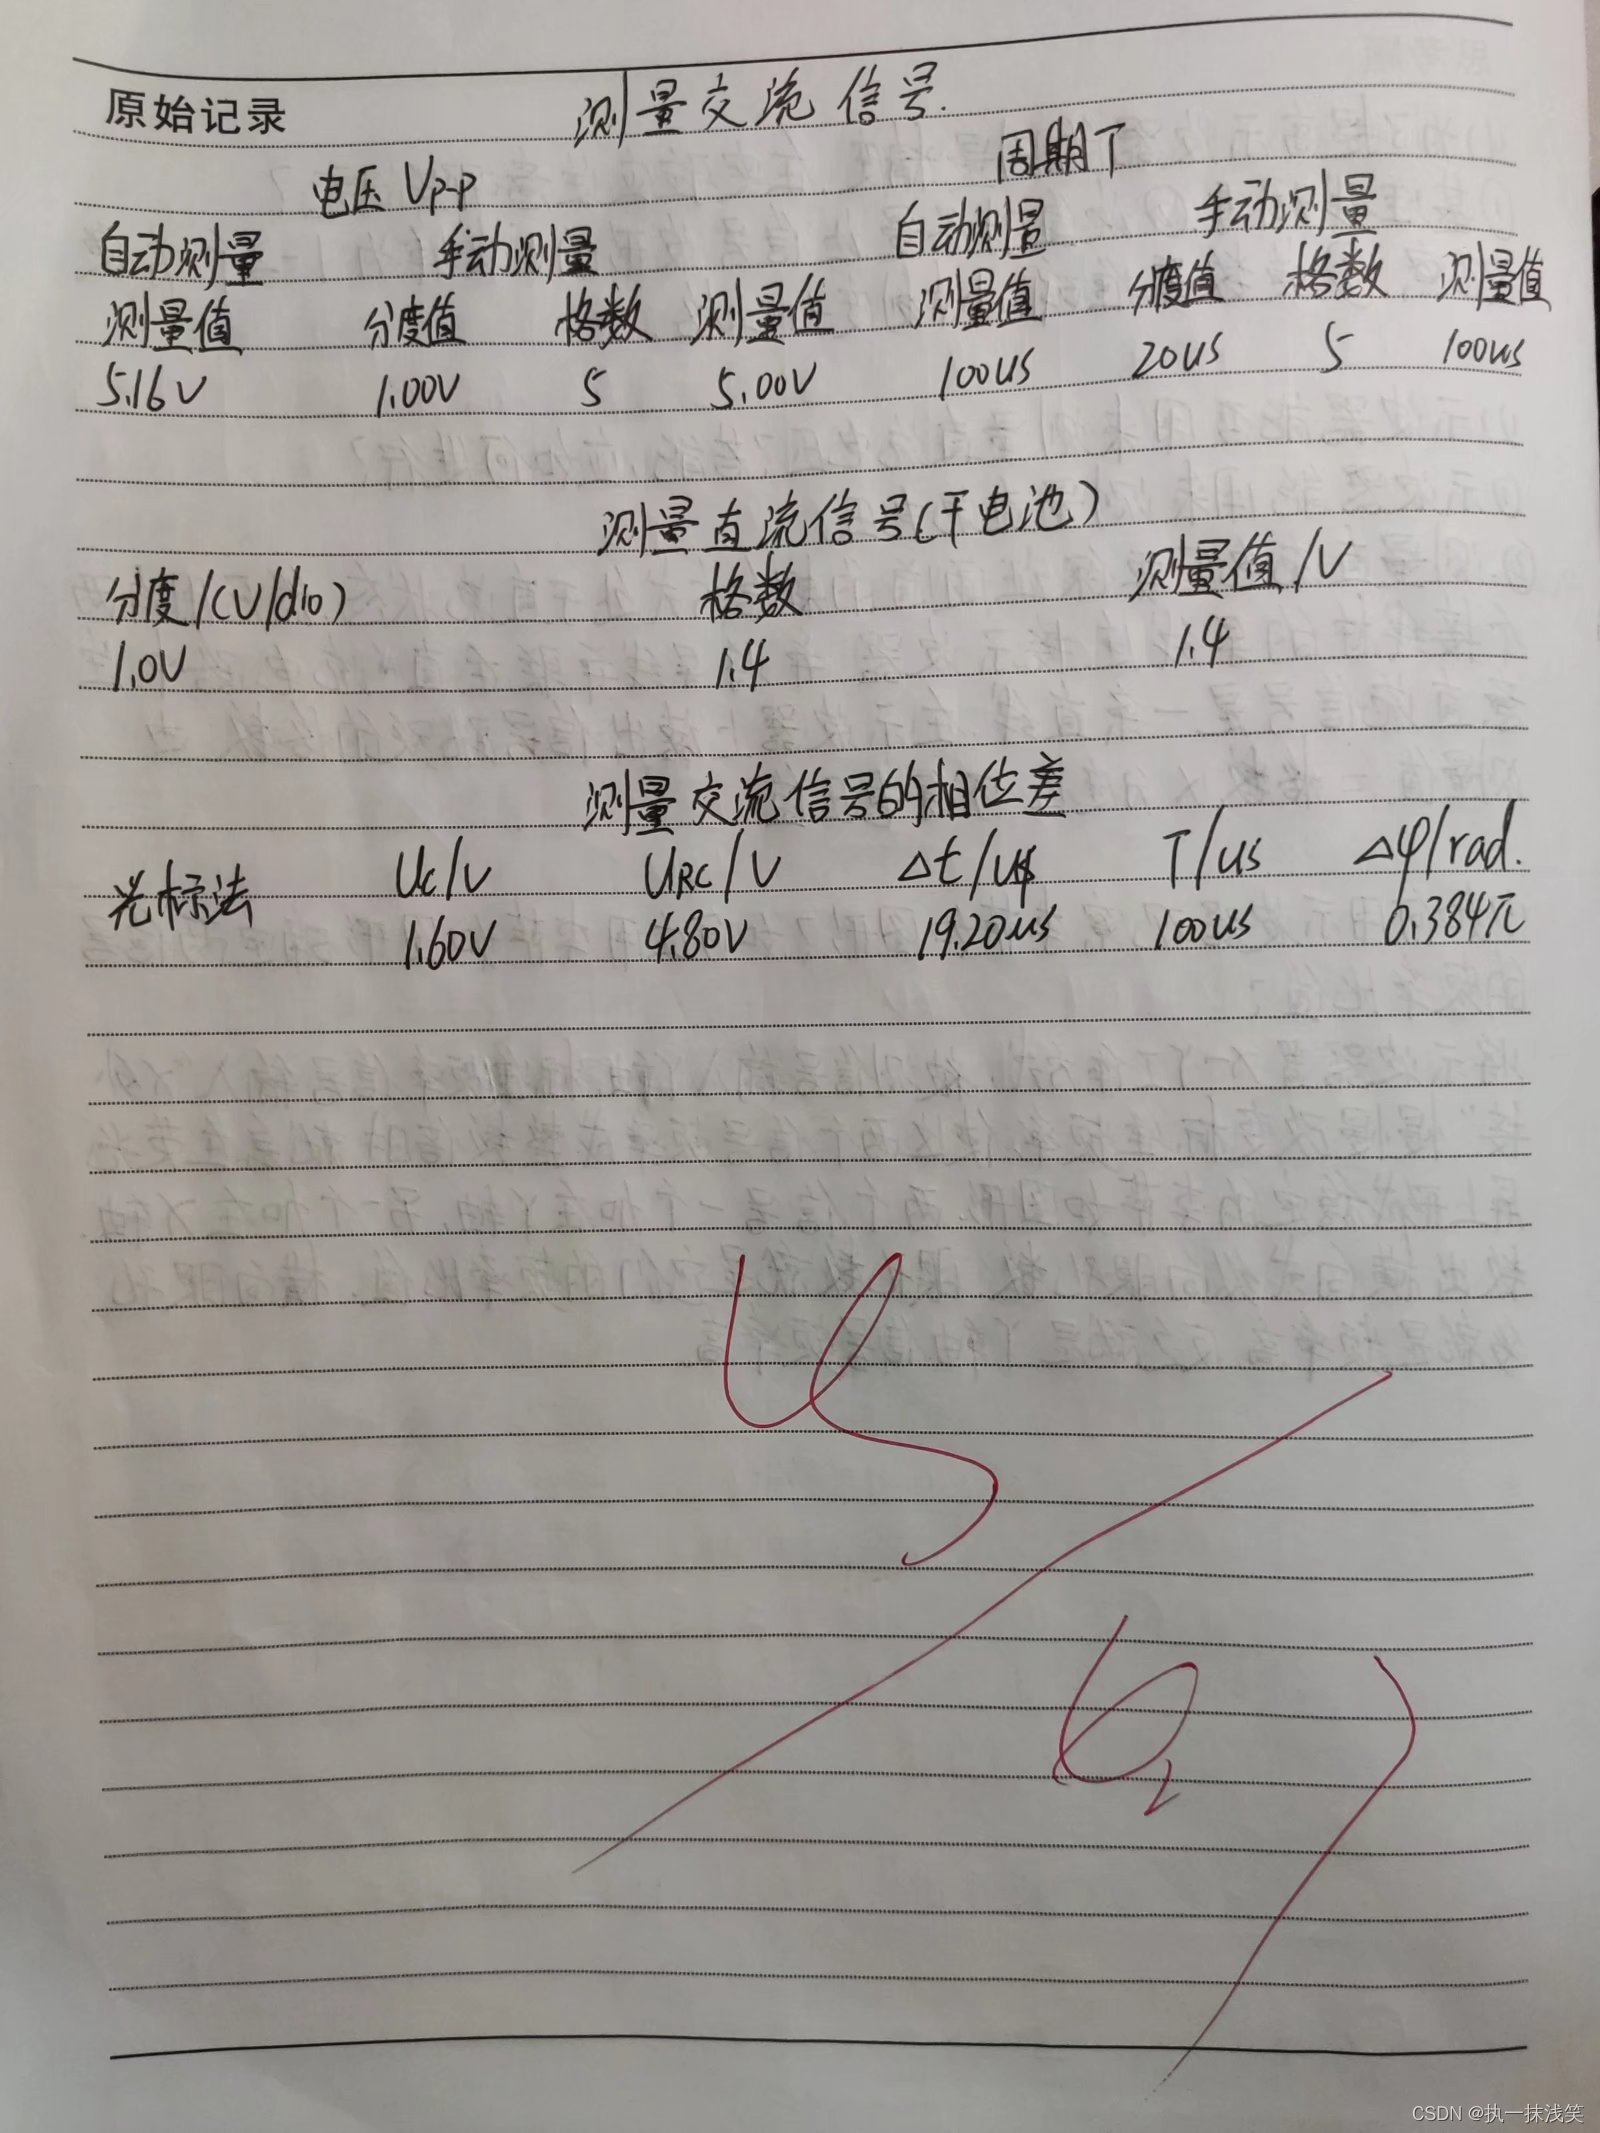 原始记录 测量交流信号.
电压 Up-p 周期T
自动测量 手动测量 自动测量 手动测量
测量值 分度值 格数 测量值 测量值 分度值 格数 测量值
5.16V 1.00V 5 5.00V 100us 20us 5 100us
测量直流信号(干电池)
分度/(V/dio) 格数 测量值/V
1.0V 1.4 1.4
测量交流信号的相位差
光标法 Uc/V URC/V Δt/us T/us Δφ/rad.
1.60V 4.80V 19.20us 100us 0.384π
CSDN @执一抹浅笑